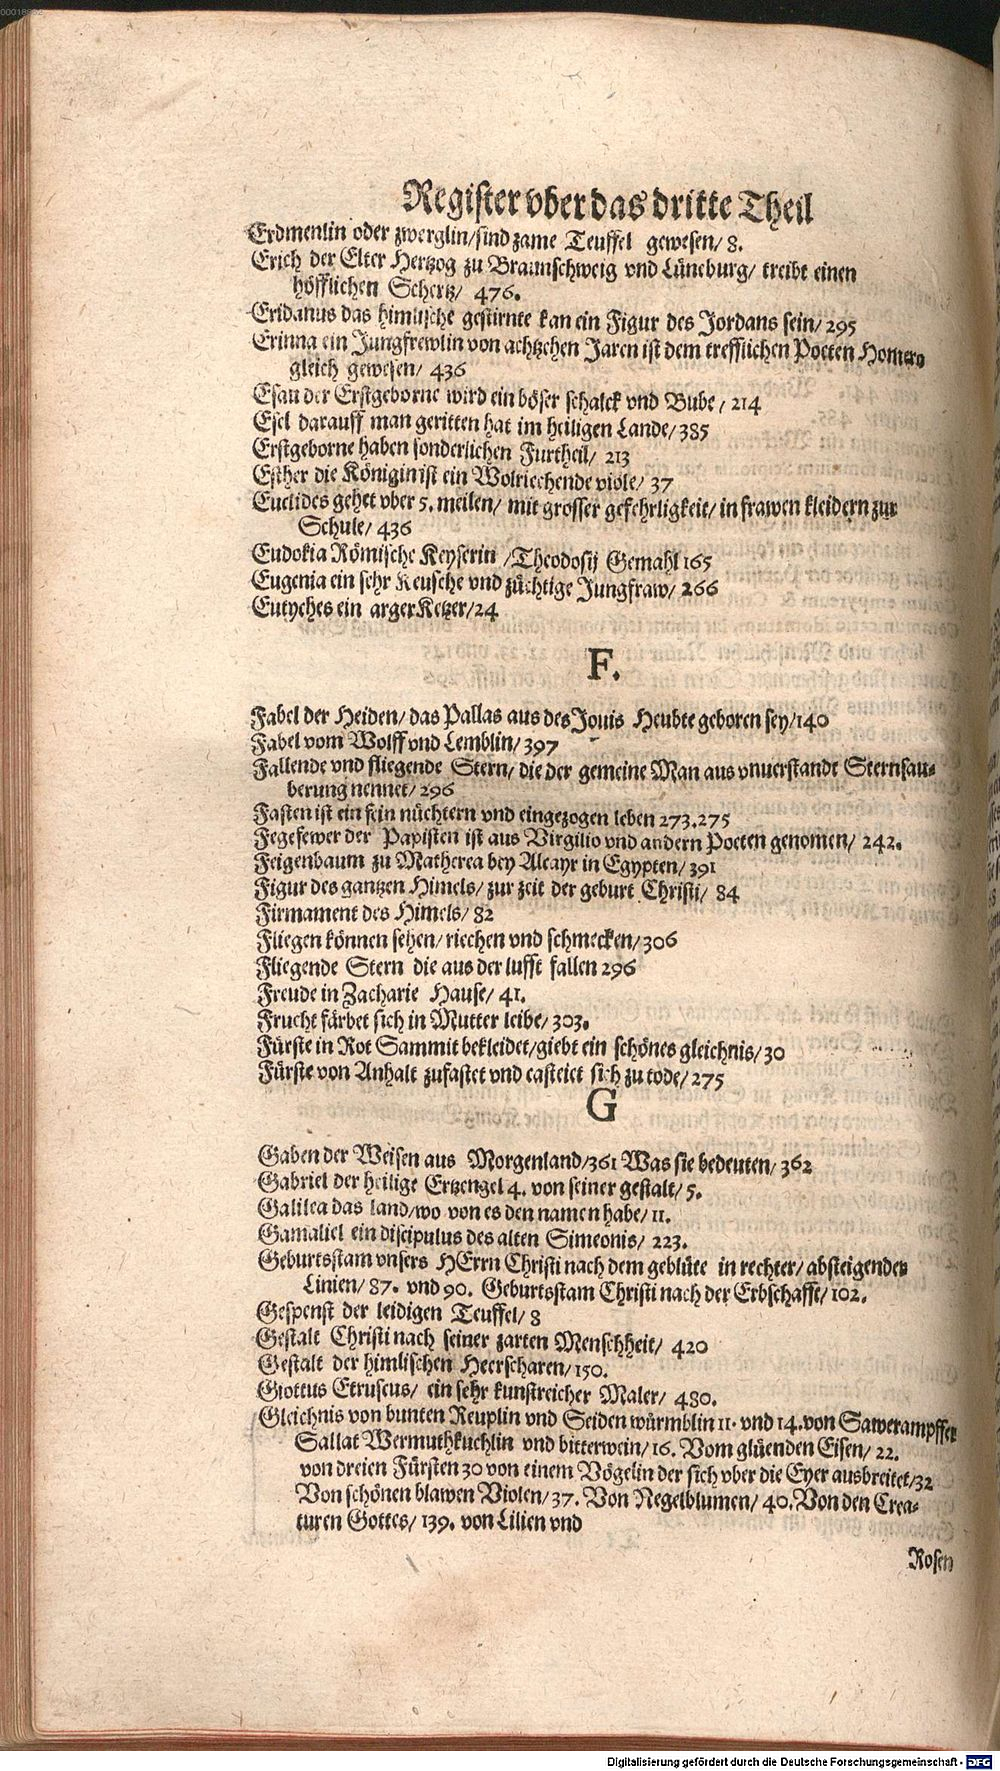 Register vber das dritte Theil
Erdmenlin oder zwerglin/sind zame Teuffel gewesen/ 8.
Erich der Elter Hertzog zu Braunschweig vnd Lüneburg/ treibt einen
höfflichen Schertz/ 476.
Eridanus das himlische gestirnte kan ein Figur des Jordans sein/ 295
Erinna ein Jungfrewlin von achtzehen Jaren ist dem trefflichen Poeten Homero
gleich gewesen/ 436
Esau der Erstgeborne wird ein böser schalck vnd Bube/ 214
Esel darauff man geritten hat im heiligen Lande/ 385
Erstgeborne haben sonderlichen Furtheil/ 213
Esther die Königin ist ein Wolriechende viole/ 37
Euclides gehet vber 5. meilen/ mit grosser gefehrligkeit/ in frawen kleidern zur
Schule/ 436
Eudokia Römische Keyserin /Theodosij Gemahl 165
Eugenia ein sehr Keusche vnd züchtige Jungfraw/ 266
Eutyches ein arger Ketzer/24
F.
Fabel der Heiden/ das Pallas aus des Jouis Heubte geboren sey/140
Fabel vom Wolff vnd Lemblin/ 397
Fallende vnd fliegende Stern/ die der gemeine Man aus vnuerstandt Sternsau-
berung nennet/ 296
Fasten ist ein fein nüchtern vnd eingezogen leben 273.275
Fegefewer der Papisten ist aus Virgilio vnd andern Poeten genomen/ 242.
Feigenbaum zu Matherea bey Alcayr in Egypten/ 391
Figur des gantzen Himels/ zur zeit der geburt Christi/ 84
Firmament des Himels/ 82
Fliegen können sehen/ riechen vnd schmecken/306
Fliegende Stern die aus der lufft fallen 296
Freude in Zacharie Hause/ 41.
Frucht färbet sich in Mutter leibe/ 303.
Fürste in Rot Sammit bekleidet/giebt ein schönes gleichnis/30
Fürste von Anhalt zufastet vnd casteiet sich zu tode/ 275
G
Gaben der Weisen aus Morgenland/361 Was sie bedeuten/ 362
Gabriel der heilige Ertzengel 4. von seiner gestalt/ 5.
Galilea das land/wo von es den namen habe/ 11.
Gamaliel ein discipulus des alten Simeonis/ 223.
Geburtsstam vnsers HErrn Christi nach dem geblüte in rechter/ absteigender
Linien/ 87. vnd 90. Geburtsstam Christi nach der Erbschafft/ 102.
Gespenst der leidigen Teuffel/ 8
Gestalt Christi nach seiner zarten Menschheit/ 420
Gestalt der himlischen Heerscharen/ 150.
Giottus Etruscus/ ein sehr kunstreicher Maler/ 480.
Gleichnis von bunten Reuplin vnd Seiden würmblin 11. vnd 14. von Sawerampffer
Sallat Wermuthkuchlin vnd bitterwein/ 16. Vom glüenden Eisen/ 22.
von dreien Fürsten 30 von einem Vögelin der sich vber die Eyer ausbreitet/32
Von schönen blawen Violen/ 37. Von Negelblumen/ 40. Von den Crea-
turen Gottes/ 139. von Lilien vnd
Rosen
Digitalisierung gefördert durch die Deutsche Forschungsgemeinschaft - DFG